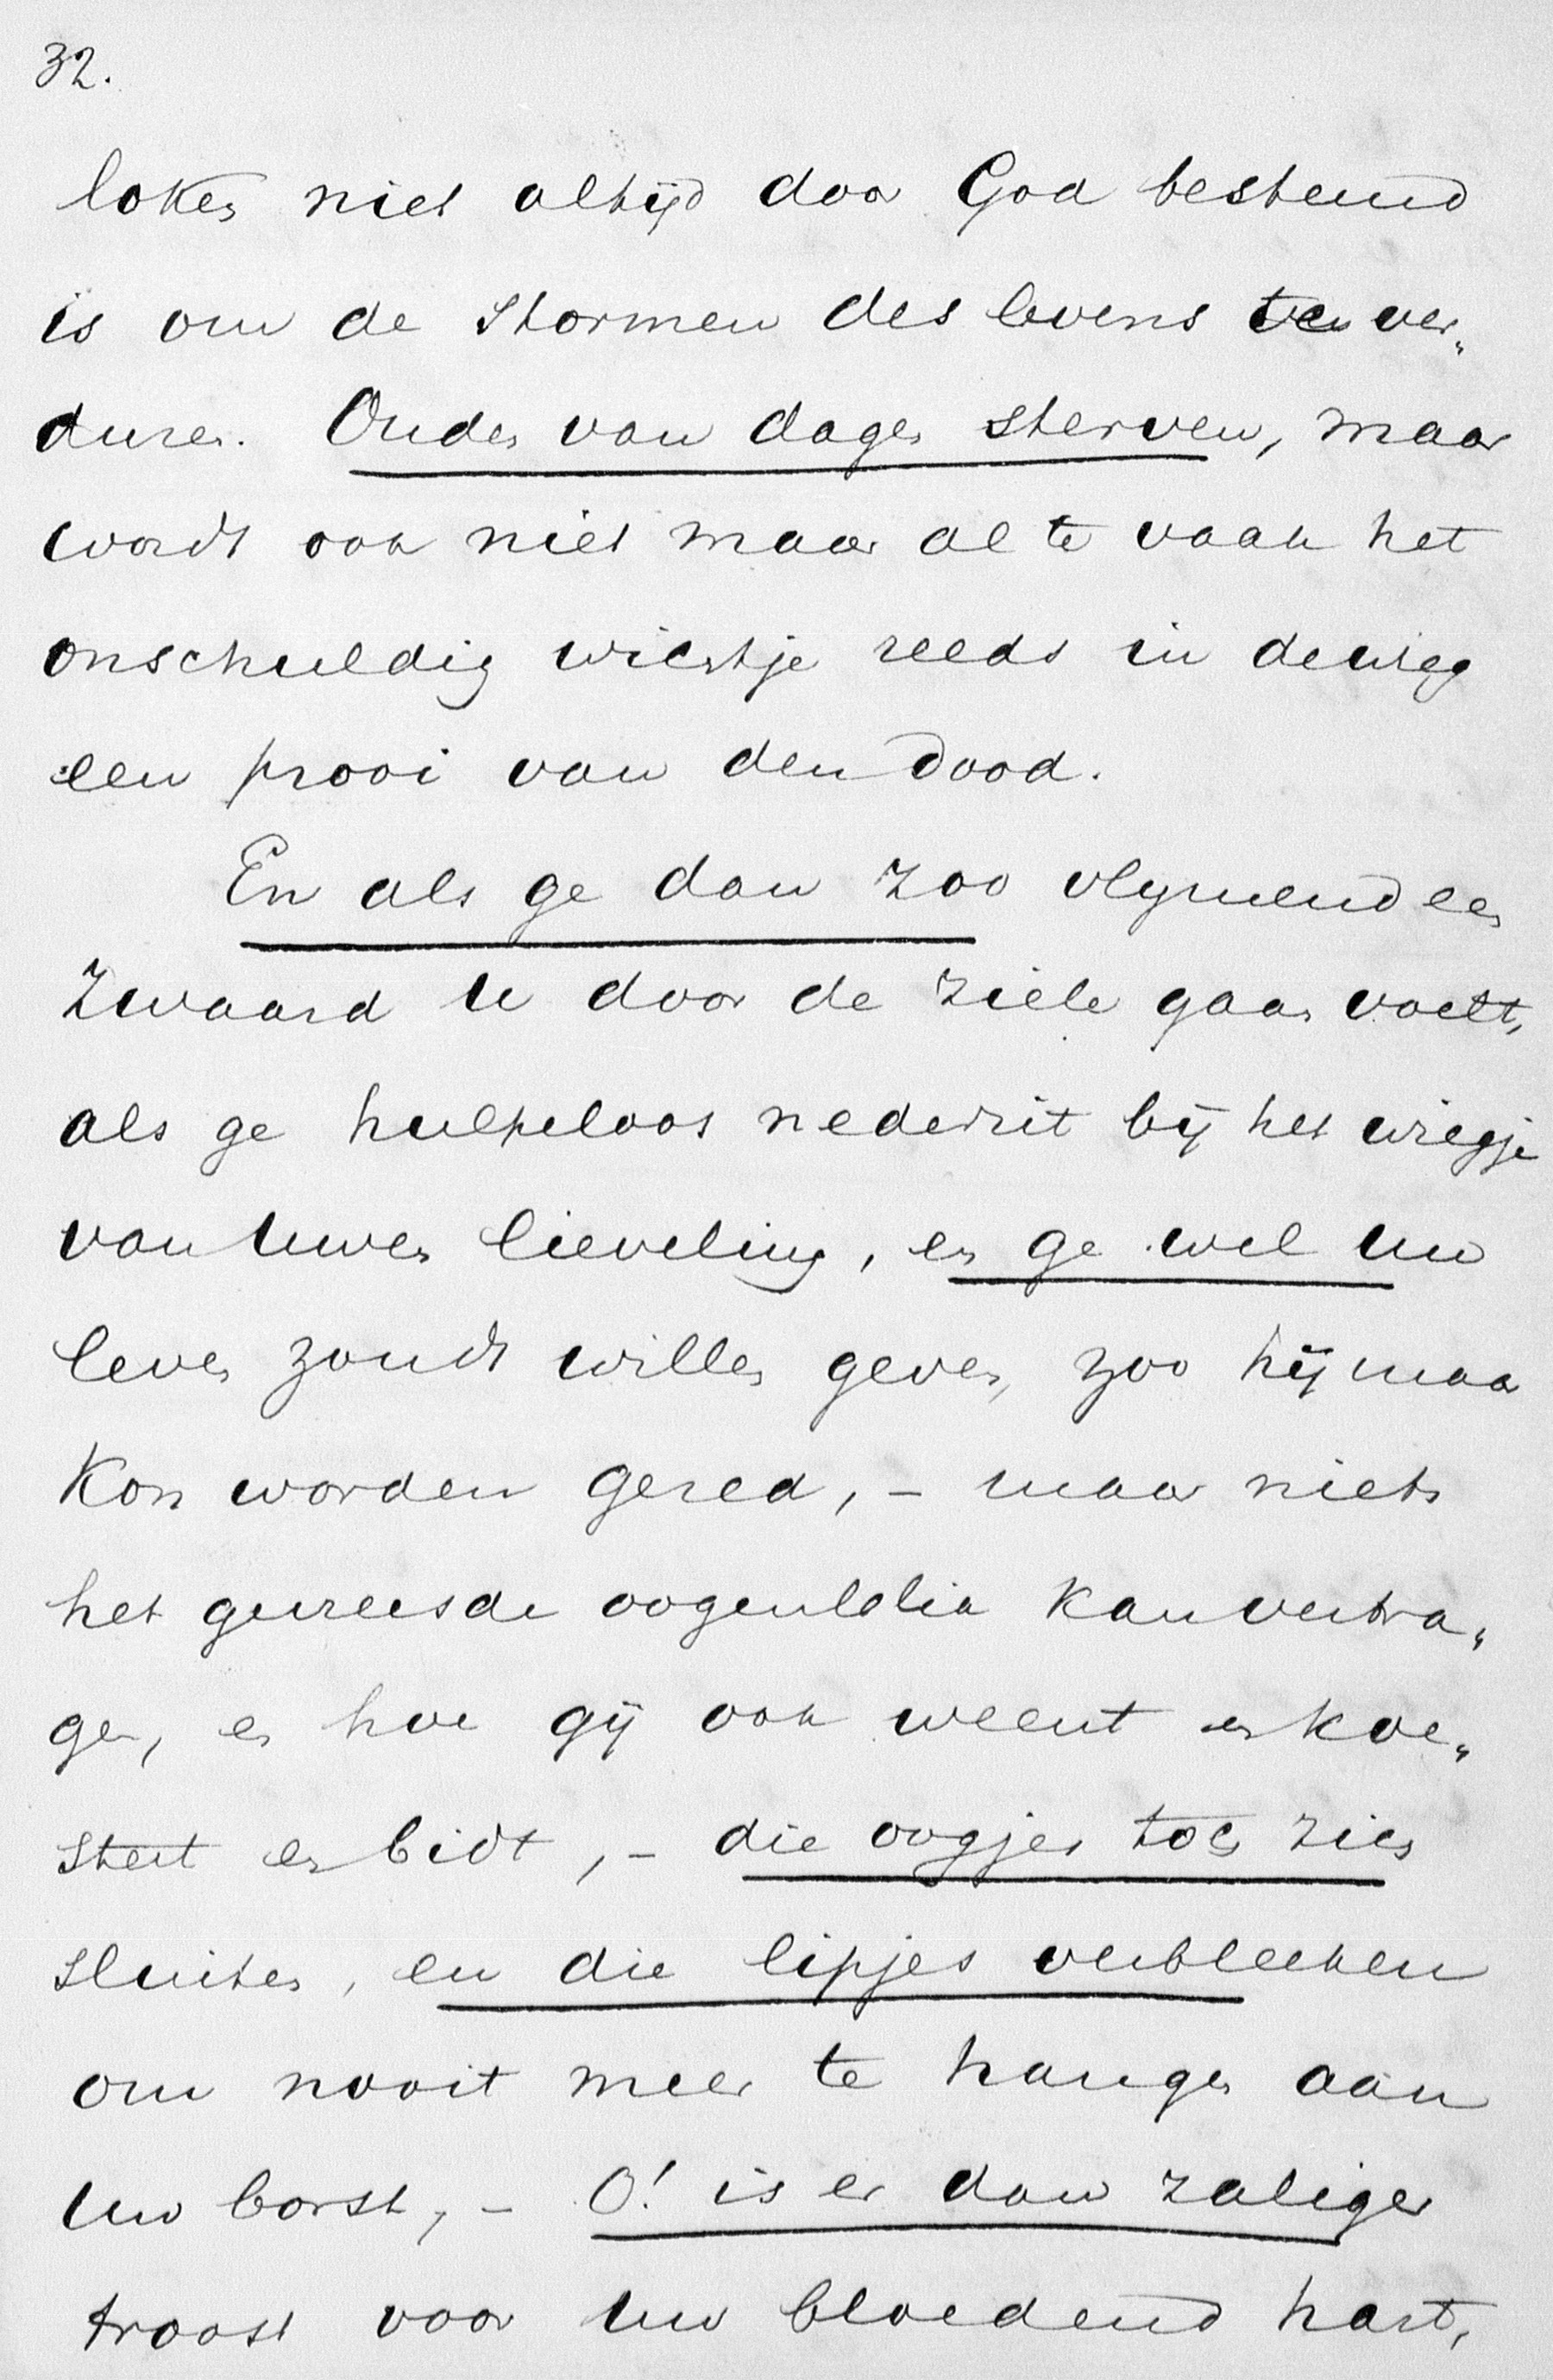 32.
lokken niet altijd door God bestemd
is om de stormen des levens te ver„
duren. Ouden van dagen sterven, maar
wordt ook niet maar al te vaak het
onschuldig wichtje reeds in de wieg
een prooi van den dood.
En als ge dan zoo vlijmend een
zwaard U door de ziele gaan voelt,
als ge hulpeloos nederzit bij het wiegje
van Uwen lieveling, en ge wel Uw
leven zoudt willen geven, zoo hij maar
kon worden gered, – maar niets
het gevreesde oogenblik kan vertra„
gen, en hoe gij ook weent en koe„
stert en bidt, – die oogjes toch zich
sluiten, en die lipjes verbleeken
om nooit meer te hangen aan
Uw borst, – O! is er dan zaliger
troost voor Uw bloedend hart,